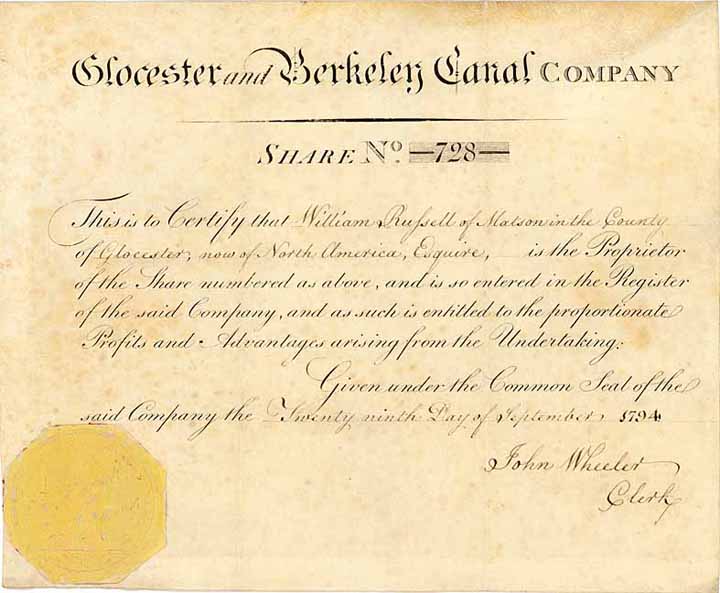 Glocester and Berkeley Canal COMPANY
SHARE No. —728—
This is to Certify that William Russell of Matson in the County
of Glocester, now of North America, Esquire, is the Proprietor
of the Share numbered as above, and is so entered in the Register
of the said Company, and as such is entitled to the proportionate
Profits and Advantages arising from the Undertaking:
Given under the Common Seal of the
said Company the Twenty ninth Day of September 1794
John Wheeler
Clerk